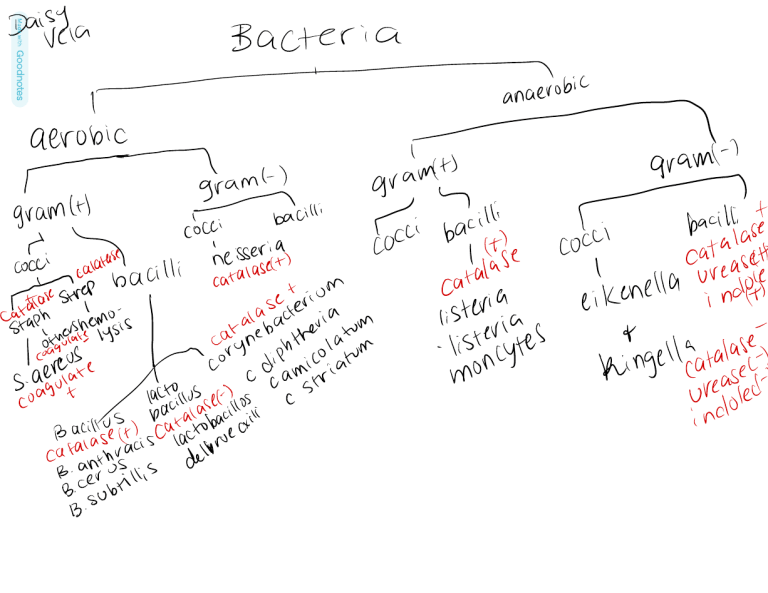 Daisy
Vela
Made with Goodnotes
Bacteria
aerobic
anaerobic
gram(+)
gram(-)
gram(+)
gram(-)
cocci
bacilli
cocci
bacilli
cocci
bacilli
cocci
bacilli
catalase
+
Staph
catalase
strep
others
coagulais
hemo-
lysis
S. aereus
coagulate
+
Bacillus
catalase(+)
B. anthracis
B. cerus
B. subtillis
lacto
bacillus
catalase(-)
lactobacillos
catalase +
corynebacterium
c diphtheria
camicolatum
c striatum
neisseria
catalase(+)
(+)
catalase
listeria
· listeria
moncytes
eikenella
+
Kingella
+
catalase
urease+
indole
(+)
catalase-
urease(-)